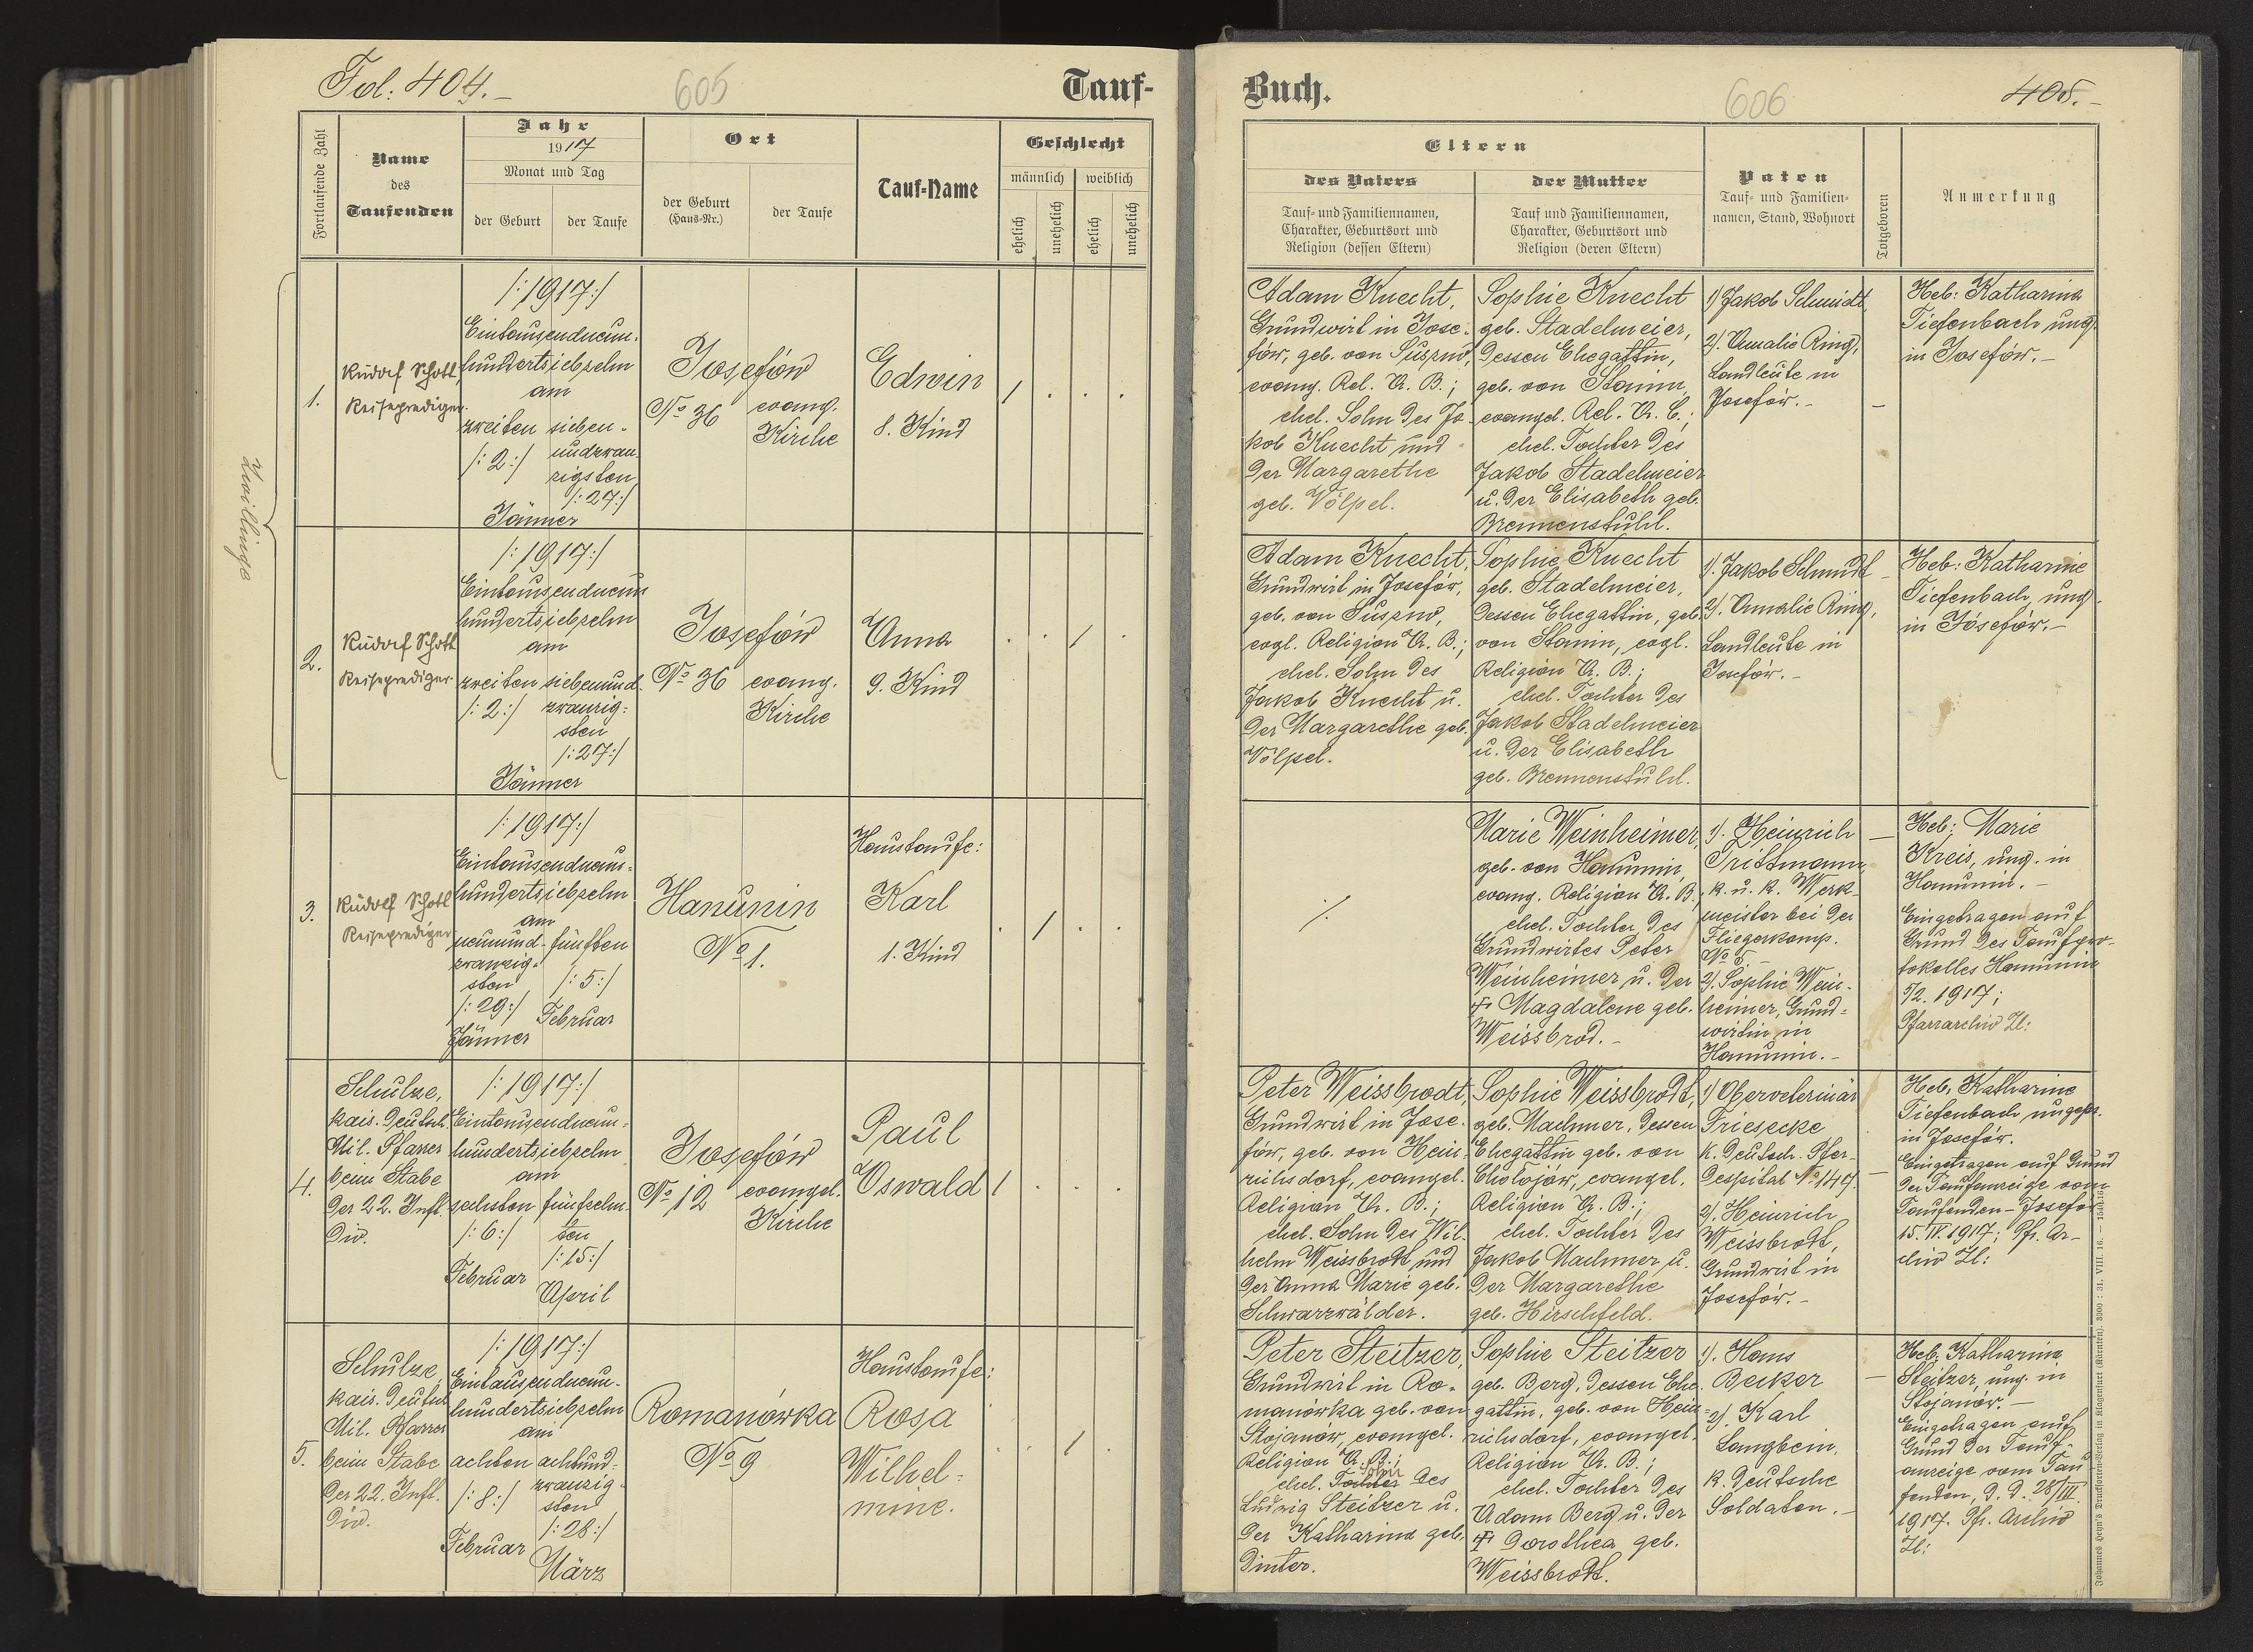 Fol: 404.-
605
Tauf-
Fortlaufende Zahl
Name
des
Taufenden
Jahr
1917
Monat und Tag
der Geburt
der Taufe
Ort
der Geburt
(Haus-Nr.)
der Taufe
Tauf-Name
Geschlecht
männlich
weiblich
ehelich
unehelich
ehelich
unehelich
Zwillinge
1.
Rudolf Schott
Reiseprediger.
/:1917:/
Eintausendneun-
hundertsiebzehn
am
zweiten
/:2:/
sieben-
undzwan-
zigsten
/:27:/
Jänner
Josefów
No 36
evang.
Kirche
Edwin
8. Kind
2.
Rudolf Schott
Reiseprediger
/:1917:/
Eintausendneun
hundertsiebzehn
am
zweiten
/:2:/
siebenund-
zwanzig-
sten
/:27:/
Jänner
Josefów
No 36
evang.
Kirche
Anna
9. Kind
3.
Rudolf Schott
Reiseprediger
/:1917:/
Eintausendneun-
hundertsiebzehn
am
neunund-
zwanzig-
sten
/:29:/
Jänner
fünften
/:5:/
Februar
Hanunin
No 1.
Haustaufe:
Karl
1. Kind
4.
Schulze,
kais. Deutsch.
Mil. Pfarrer
beim Stabe
der 22. Inft.
Div.
/:1917:/
Eintausendneun-
hundertsiebzehn
am
sechsten
/:6:/
Februar
fünfzehn-
ten
/:15:/
April
Josefów
No 12
evangel.
Kirche
Paul
Oswald
5.
Schulze,
kais. Deutsch
Mil. Pfarrer
beim Stabe
der 22. Inft.
Div.
/:1917:/
Eintausendneun-
hundertsiebzehn
am
achten
/:8:/
Februar
achtund-
zwanzig-
sten
/:28:/
März
Romanówka
No 9
Haustaufe:
Rosa
Wilhel-
mine.
Buch.
606
405.-
Eltern
des Vaters
Tauf- und Familiennamen,
Charakter, Geburtsort und
Religion (dessen Eltern)
der Mutter
Tauf und Familiennamen,
Charakter, Geburtsort und
Religion (deren Eltern)
Paten
Tauf- und Familien-
namen, Stand, Wohnort
Totgeboren
Anmerkung
Adam Knecht,
Grundwirt in Jose-
fów, geb. von Suszno,
evang. Rel. A. B.;
ehel. Sohn des Ja-
kob Knecht und
der Margarethe
geb. Völpel.
Sophie Knecht
geb. Stadelmeier,
dessen Ehegattin,
geb. von Stanin,
evangel. Rel. A. C.;
ehel. Tochter des
Jakob Stadelmeier
u. der Elisabeth geb.
Brennenstuhl.
1) Jakob Schmidt,
2). Amalie Ring,
Landleute in
Josefów.-
Heb: Katharina
Tiefenbach ung.
in Josefów.-
Adam Knecht,
Grundwirt in Josefów,
geb. von Suszno,
evgl. Religion A. B.;
ehel. Sohn des
Jakob Knecht u.
der Margarethe geb.
Völpel.
Sophie Knecht
geb. Stadelmeier,
dessen Ehegattin, geb.
von Stanin, evgl.
Religion A. B.;
ehel. Tochter des
Jakob Stadelmeier
u. der Elisabeth
geb. Brennenstuhl.
1). Jakob Schmidt
2). Amalie Ring,
Landleute in
Josefów.-
Heb: Katharine
Tiefenbach ung.
in Josefów.-
Marie Weinheimer,
geb. von Hanunin,
evang. Religion A. B.,
ehel. Tochter des
Grundwirtes Peter
Weinheimer u. der
Magdalene geb.
Weissbrod.-
1). Heinrich
Trittmann,
k. u. k. Werk-
meister bei der
Fliegerkomp.
No
2). Sophie Wein-
heimer, Grund-
wirtin in
Hanunin.-
Heb: Marie
Kreis, ung. in
Hanunin.-
Eingetragen auf
Grund des Taufpro-
tokolles Hanunin
5/2. 1917;
Pfarrarchiv Zl:
Peter Weissbrodt,
Grundwirt in Jose-
fów, geb. von Hein-
richsdorf, evangel.
Religion A. B.;
ehel. Sohn des Wil-
helm Weissbrodt und
der Anna Marie geb.
Schwarzwälder.
Sophie Weissbrodt,
geb. Machmer, dessen
Ehegattin geb. von
Chołojów, evangel.
Religion A. B.;
ehel. Tochter des
Jakob Machmer u.
der Margarethe
geb. Hirschfeld.
1) Oberveterinär
Friesecke
k. Deutsch. Pfer-
despital No 149.
2). Heinrich
Weissbrodt,
Grundwirt in
Josefów.-
Heb. Katharine
Tiefenbach ungepr.
in Josefów.
Eingetragen auf Grund
der Taufanzeige vom
Taufenden - Josefów
15. IV. 1917; Pfr. Ar-
chiv Zl:
Peter Steitzer,
Grundwirt in Ro-
manówka geb. von
Stojanow, evangel.
Religion A. B.;
Sohn
ehel. Tochter des
Ludwig Steitzer u.
der Katharina geb.
Dinter.
Sophie Steitzer
geb. Berg, dessen Ehe-
gattin, geb. von Hein-
richsdorf, evangel.
Religion A. B.;
ehel. Tochter des
Adam Berg u. der
Dorothea geb.
Weissbrodt.
1). Hans
Becker
2). Karl
Langbein,
k. Deutsche
Soldaten.-
Heb. Katharina
Steitzer, ung. in
Stojanów.-
Eingetragen auf
Grund der Tauf-
anzeige vom Tau-
fenden, d. d. 28/III.
1917. Pfr. Archiv
Zl:
Johannes Heyn's Drucksorten-Verlag in Klagenfurt (Kärnten). 3300 : 31. VIII. 16. — 1540.16